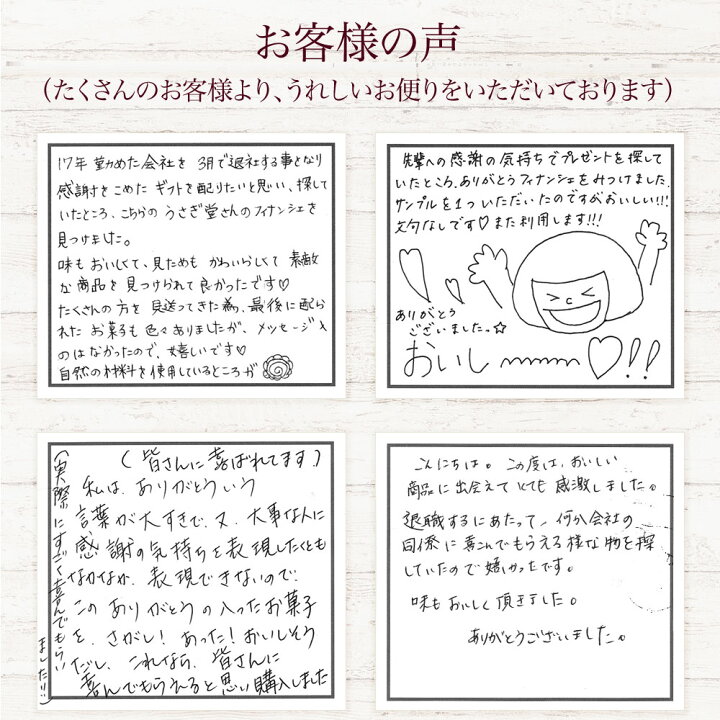 お客様の声
(たくさんのお客様より、うれしいお便りをいただいております)
17年 勤めた会社を 3月で退社する事となり
感謝をこめた ギフトを配りたいと思い、探して
いたところ、こちらの うさぎ堂さんのフィナンシェを
見つけました。
味も おいしくて、見ためも かわいらしくて 素敵
な 商品を 見つけられて 良かったです♡
たくさんの方を 見送ってきた為、最後に配ら
れた お菓子も 色々ありましたが、メッセージ入
のは なかったので、嬉しいです♡
自然の材料を使用しているところが
先輩への感謝の気持ちでプレゼントを探して
いたところ、ありがとうフィナンシェをみつけました。
サンプルを1ついただいたのですがおいしい!!!
文句なしです♡また利用します!!!
ありがとう
ございました。☆
おいし〜〜〜♡!!
(皆さんに喜ばれてます)
私は、ありがとういう
言葉が大すきで、又、大事な人に
感謝の気持ちを表現したくとも
なかなか、表現できないので、
この ありがとうの入ったお菓子
を、さがし!あった!おいしそう
だし、これなら、皆さんに
喜んでもらえると思い購入しました
(実際にすごく喜んでもらい
ました!!)
こんにちは。この度は、おいしい
商品に出会えて とても 感激しました。
退職するにあたって、何か会社の
同僚に喜んでもらえる様な物を探
していたので嬉しかったです。
味もおいしく頂きました。
ありがとうございました。